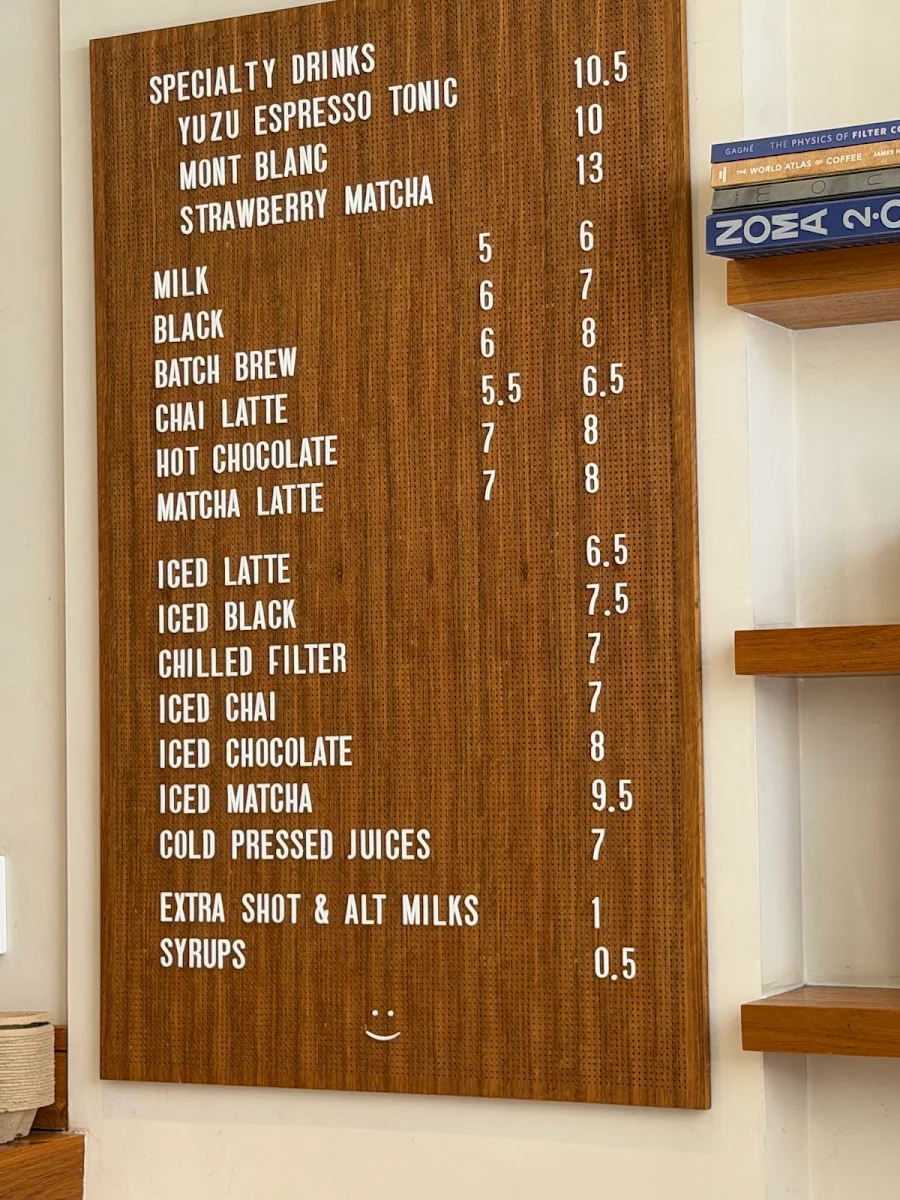 SPECIALTY DRINKS
YUZU ESPRESSO TONIC 10.5
MONT BLANC 10
STRAWBERRY MATCHA 13
MILK 5 6
BLACK 6 7
BATCH BREW 6 8
CHAI LATTE 5.5 6.5
HOT CHOCOLATE 7 8
MATCHA LATTE 7 8
ICED LATTE 6.5
ICED BLACK 7.5
CHILLED FILTER 7
ICED CHAI 7
ICED CHOCOLATE 8
ICED MATCHA 9.5
COLD PRESSED JUICES 7
EXTRA SHOT & ALT MILKS 1
SYRUPS 0.5
GAGNÉ THE PHYSICS OF FILTER CO
THE WORLD ATLAS OF COFFEE JAMES H
NOMA 2.0